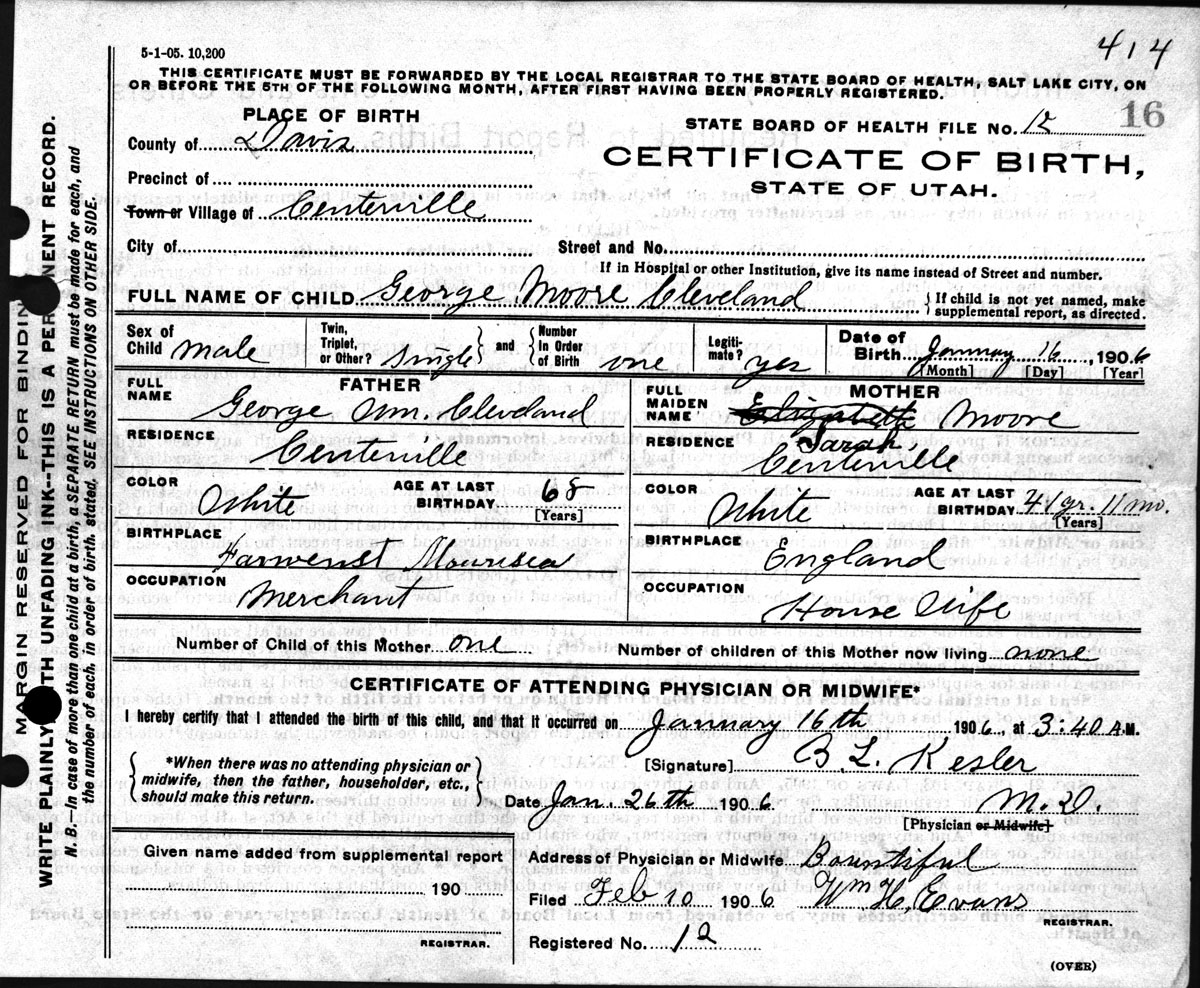 414
5-1-05. 10,200
THIS CERTIFICATE MUST BE FORWARDED BY THE LOCAL REGISTRAR TO THE STATE BOARD OF HEALTH, SALT LAKE CITY, ON
OR BEFORE THE 5TH OF THE FOLLOWING MONTH, AFTER FIRST HAVING BEEN PROPERLY REGISTERED.
PLACE OF BIRTH
STATE BOARD OF HEALTH FILE NO. 12 16
County of Davis
CERTIFICATE OF BIRTH,
STATE OF UTAH.
Precinct of
Town or Village of Centerville
City of Street and No.
If in Hospital or other Institution, give its name instead of Street and number.
FULL NAME OF CHILD George Moore Cleveland { If child is not yet named, make
supplemental report, as directed.
Sex of Child male Twin, Triplet, or Other? single } and { Number In Order of Birth one Legiti-mate? yes Date of Birth January 16, 1906
[Month] [Day] [Year]
FATHER
FULL NAME George Wm. Cleveland
RESIDENCE Centerville
COLOR White AGE AT LAST BIRTHDAY 68
[Years]
BIRTHPLACE
OCCUPATION Merchant
MOTHER
FULL MAIDEN NAME Elizabeth Moore
Sarah
RESIDENCE Centerville
COLOR White AGE AT LAST BIRTHDAY 41 yr. 11 mo.
[Years]
BIRTHPLACE England
OCCUPATION House Wife
Number of Child of this Mother one Number of children of this Mother now living none
CERTIFICATE OF ATTENDING PHYSICIAN OR MIDWIFE*
I hereby certify that I attended the birth of this child, and that it occurred on January 16th 1906, at 3:40 A.M.
*When there was no attending physician or
midwife, then the father, householder, etc.,
should make this return.
[Signature] B. L. Kesler
Date Jan. 26th 1906 M.D.
[Physician or Midwife]
Given name added from supplemental report
190
REGISTRAR.
Address of Physician or Midwife Bountiful
Filed Feb 10 1906 Wm H. Evans
REGISTRAR.
Registered No. 12
(OVER)
MARGIN RESERVED FOR BINDING
WRITE PLAINLY WITH UNFADING INK--THIS IS A PERMANENT RECORD.
N. B. In case of more than one child at a birth, a SEPARATE RETURN must be made for each, and
the number of each, in order of birth, stated. SEE INSTRUCTIONS ON OTHER SIDE.